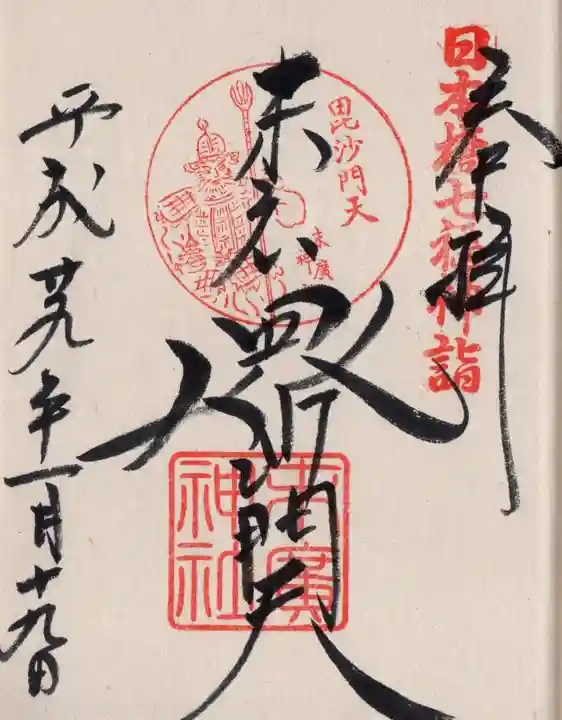 奉拝
日本橋七福神詣
末広
毘沙門天
毘沙門天
末廣
神社
末廣神社
平成廿九年一月十九日